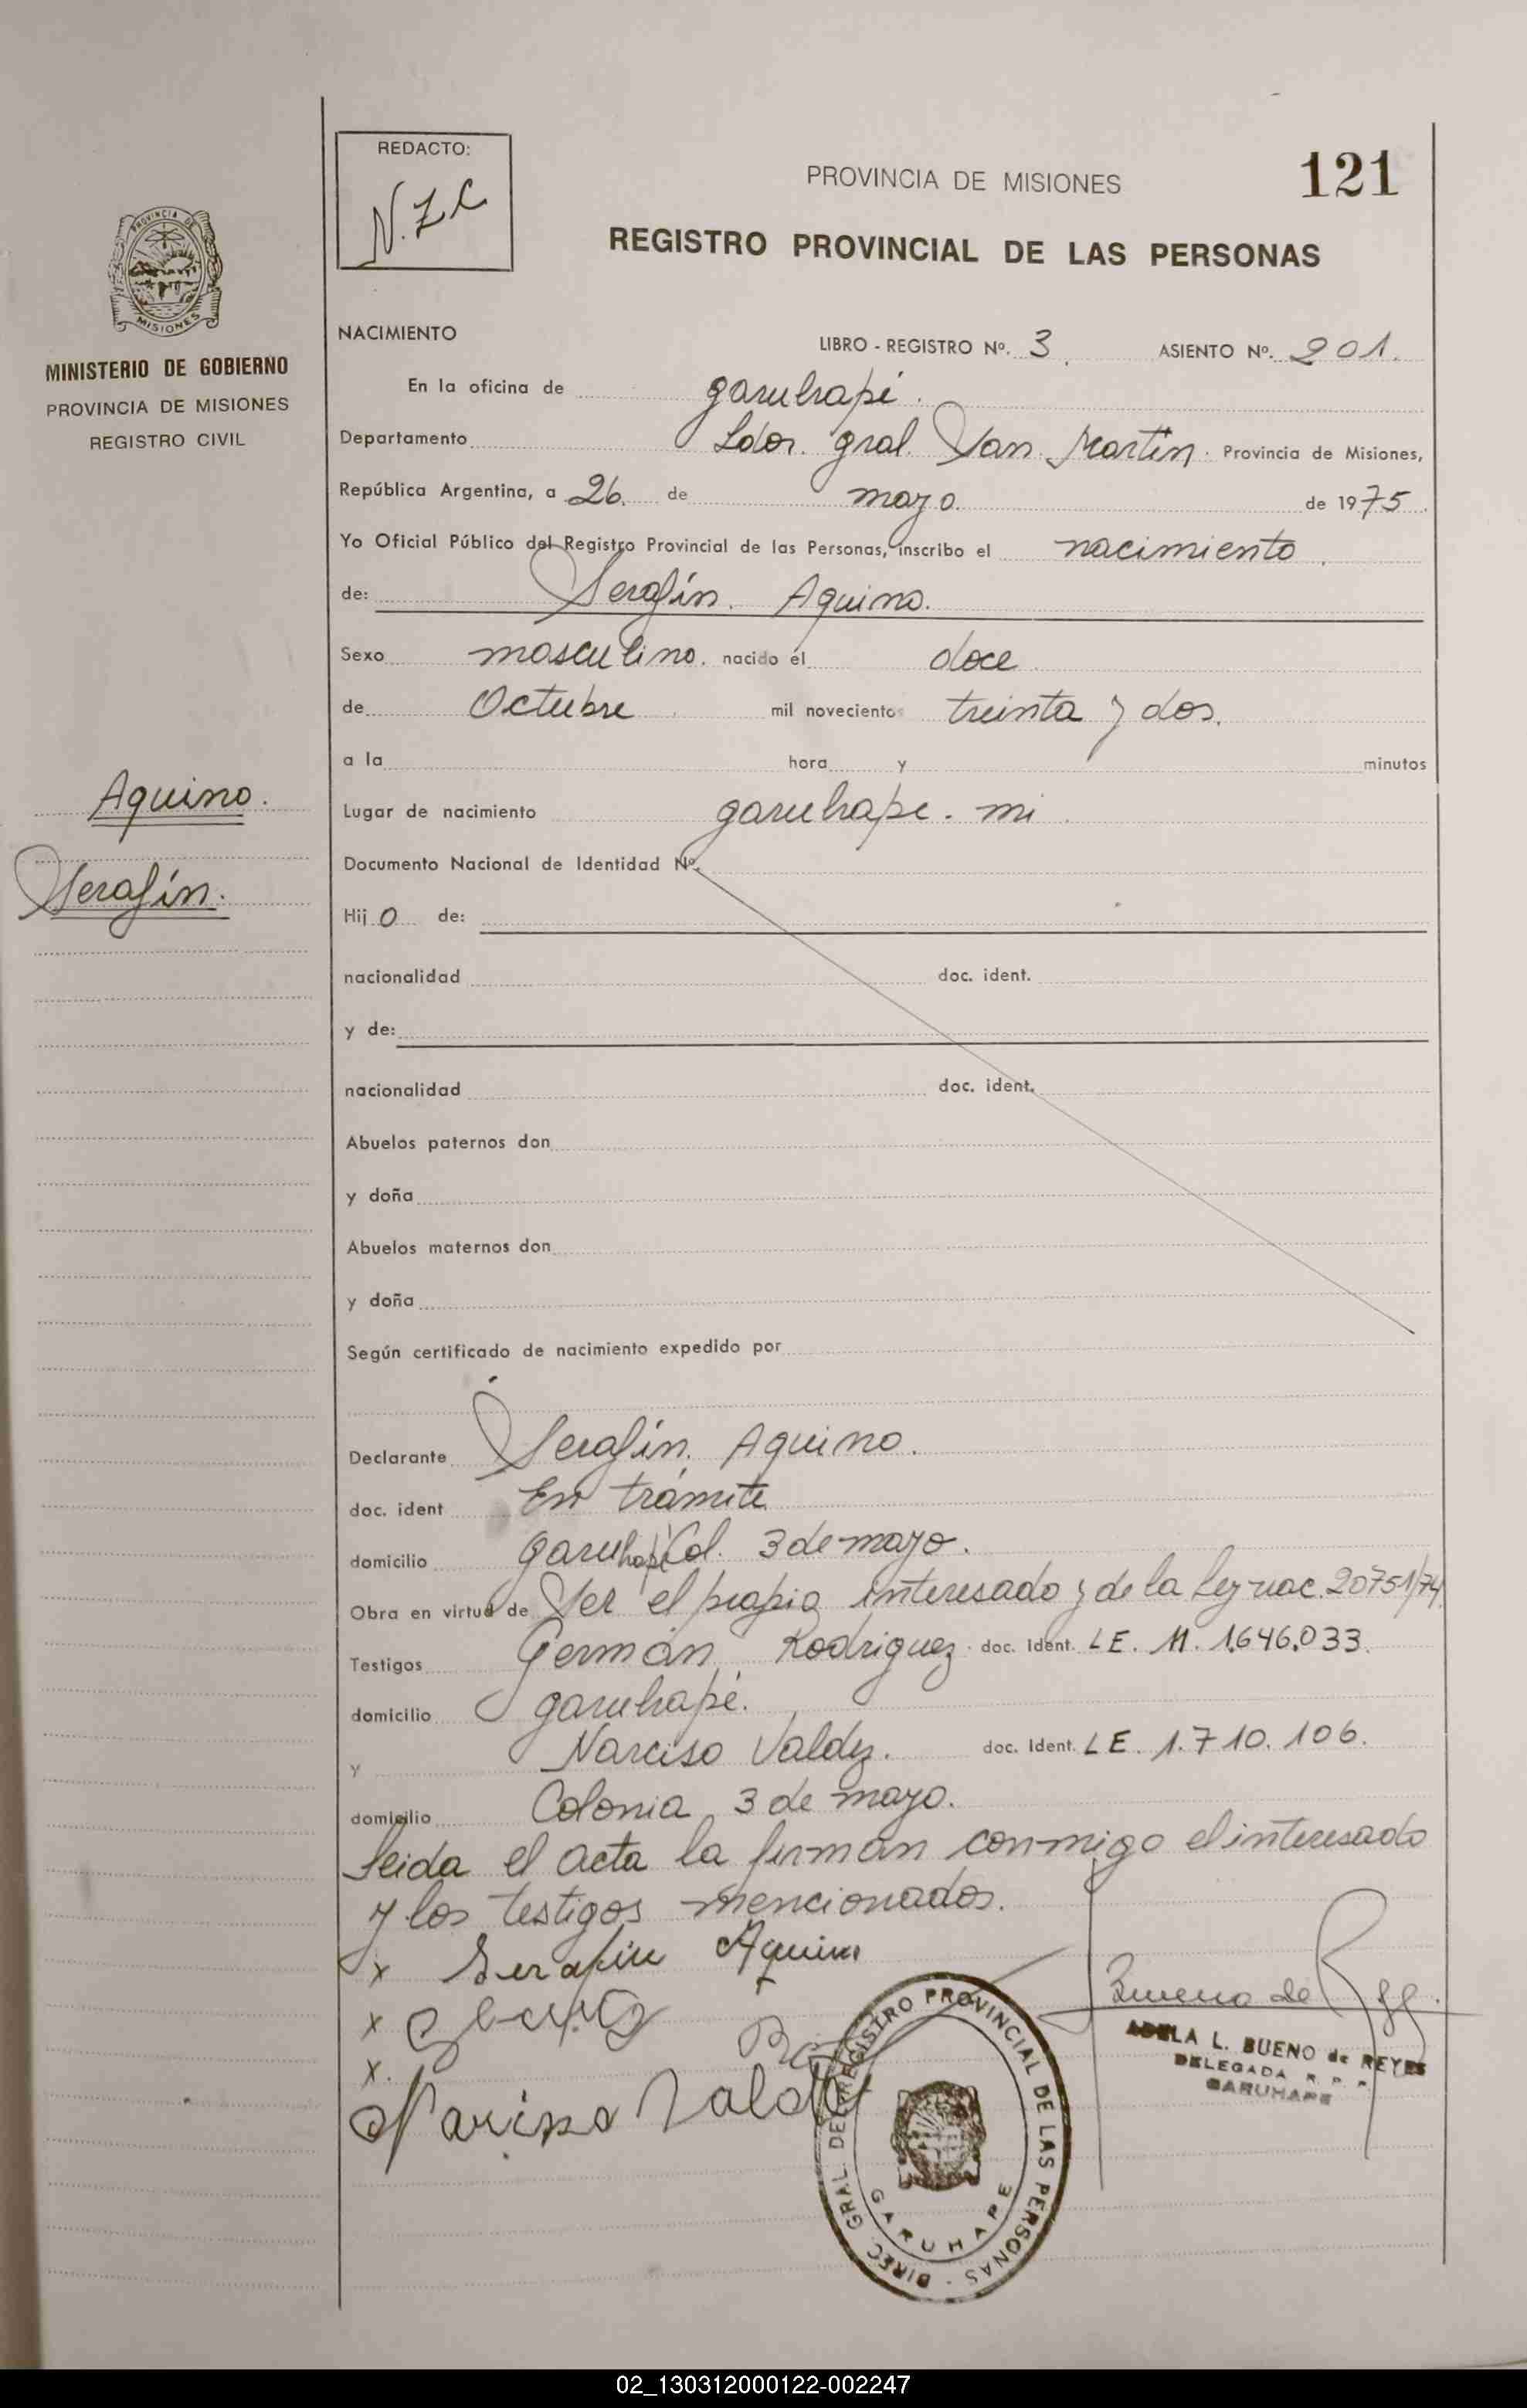 REDACTO:
N.Z.C
PROVINCIA DE MISIONES
121
REGISTRO PROVINCIAL DE LAS PERSONAS
PROVINCIA DE
MISIONES
MINISTERIO DE GOBIERNO
PROVINCIA DE MISIONES
REGISTRO CIVIL
NACIMIENTO
LIBRO - REGISTRO Nº. 3 ASIENTO Nº. 201.
En la oficina de garuhapé.
Departamento Ldor. gral. San Martín. Provincia de Misiones,
República Argentina, a 26. de mayo. de 1975
Yo Oficial Público del Registro Provincial de las Personas, inscribo el nacimiento
de: Serafín. Aquino.
Sexo masculino. nacido el doce
de Octubre mil novecientos treinta y dos.
a la hora y minutos
Aquino.
Serafín.
Lugar de nacimiento garuhape. mi
Documento Nacional de Identidad Nº.
Hij o de:
nacionalidad doc. ident.
y de:
nacionalidad doc. ident.
Abuelos paternos don
y doña
Abuelos maternos don
y doña
Según certificado de nacimiento expedido por
Declarante Serafín. Aquino.
doc. ident En trámite
domicilio garuhapé Col. 3 de mayo.
Obra en virtud de Ser el propio interesado y de la Ley nac. 20751/74.
Testigos Germán Rodriguez. doc. Ident. L E. M. 1.646.033.
domicilio garuhapé.
y Narciso Valdez. doc. Ident. L E. 1.710.106.
domicilio Colonia 3 de mayo.
Leida el acta la firman conmigo el interesado
y los testigos mencionados.
x Serafin Aquino
x
x.
Bueno de
ADELA L. BUENO de REYES
DELEGADA R. P. P.
GARUHAPE
DIREC. GRAL. DEL REGISTRO PROVINCIAL DE LAS PERSONAS
GARUHAPE
02_130312000122-002247